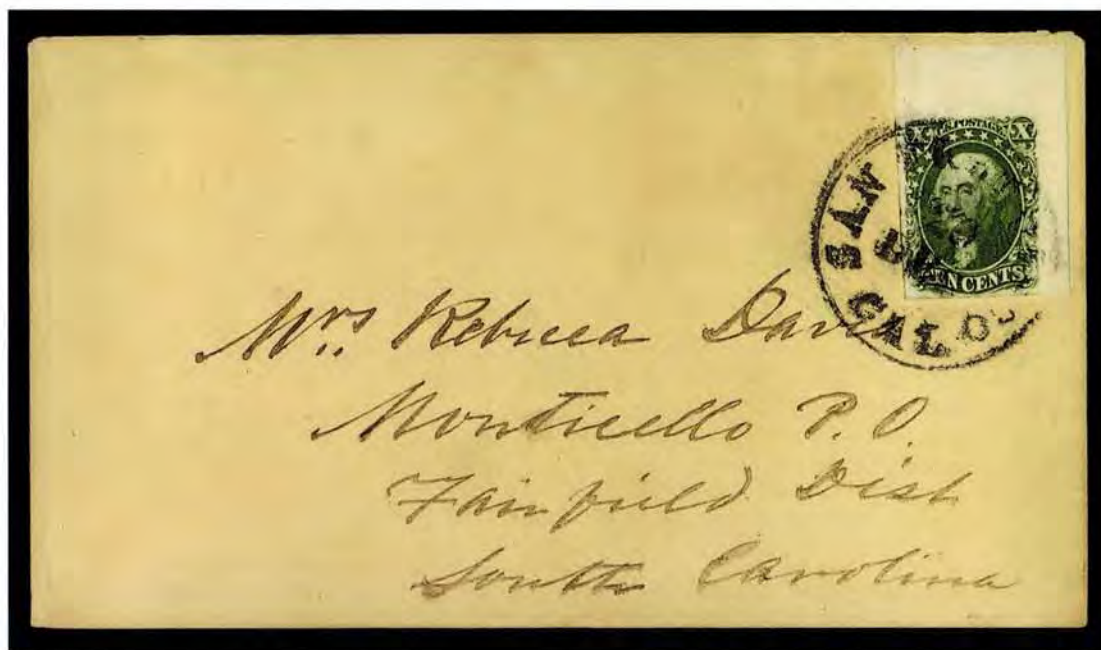 X U.S. POSTAGE X
SAN
CAL.
TEN CENTS
Mrs. Rebecca Davis
Monticello P.O.
Fairfield Dist
South Carolina